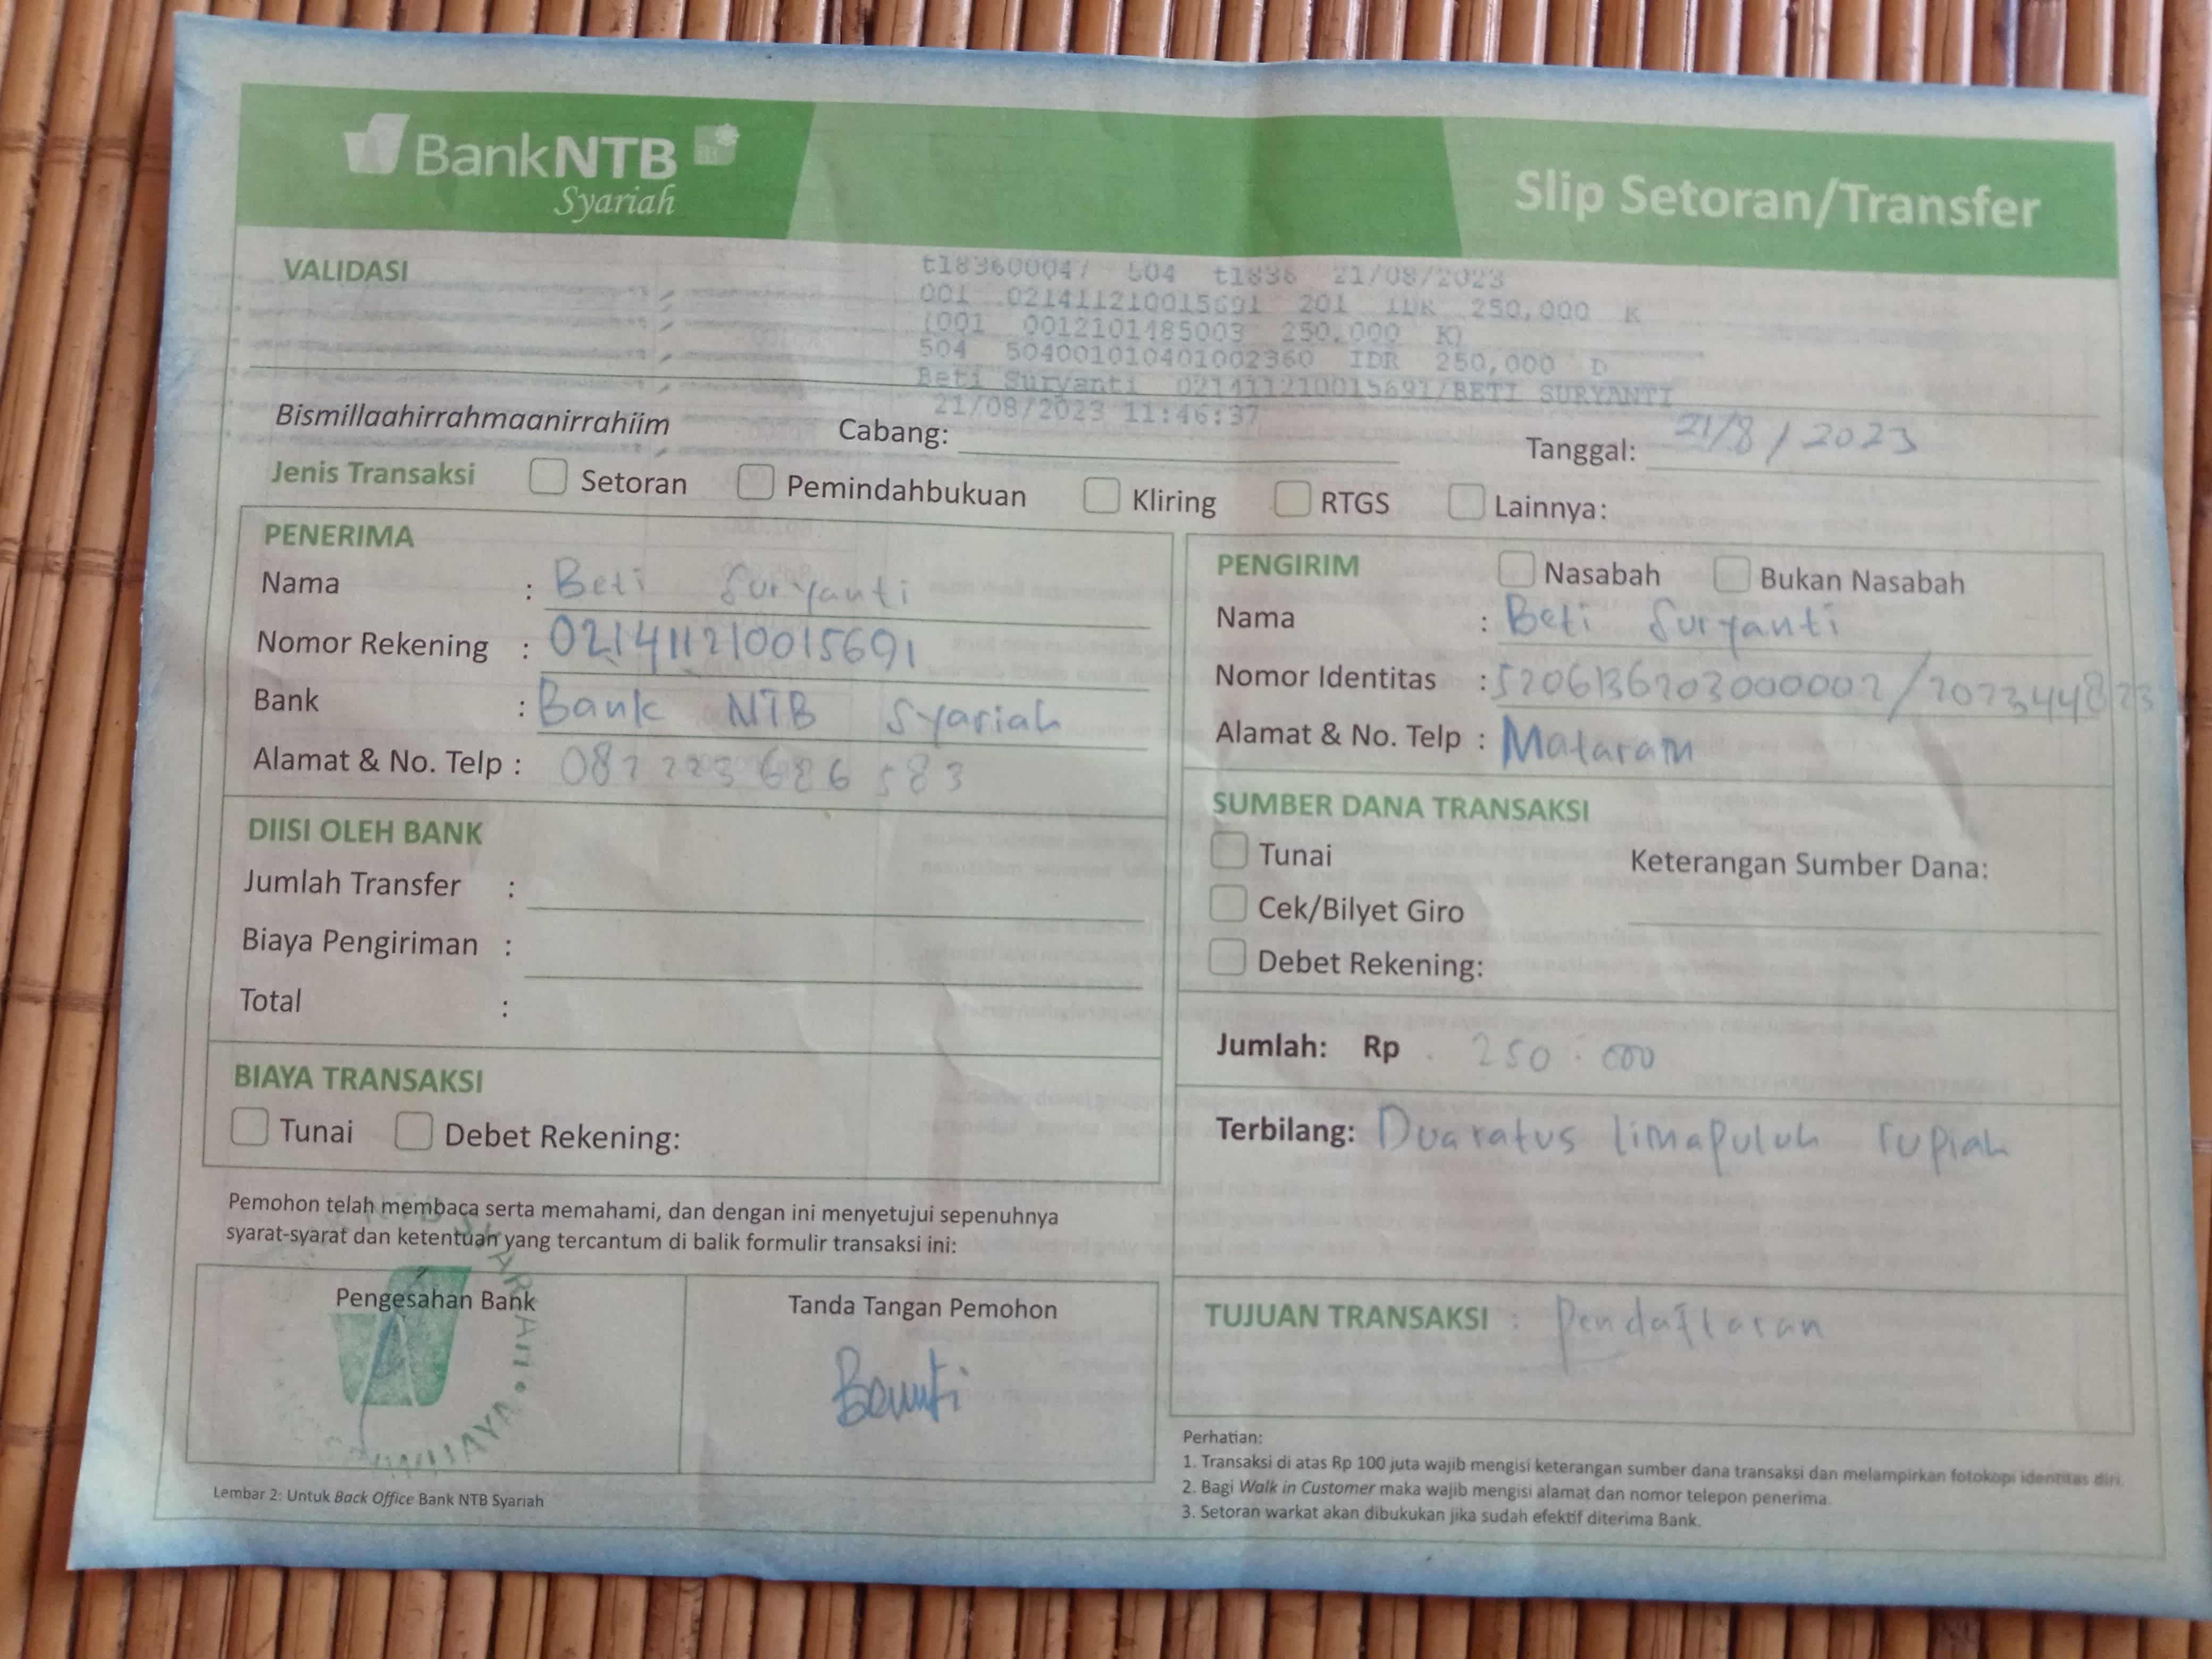 BankNTB
Syariah
Slip Setoran/Transfer
VALIDASI
t183600047 504 t1836 21/08/2023
001 021411210015691 201 IDR 250,000 K
(001 0012101485003 250,000 K)
504 504001010401002360 IDR 250,000 D
Beti Suryanti 021411210015691/BETI SURYANTI
21/08/2023 11:46:37
Bismillaahirrahmaanirrahiim
Cabang:
Tanggal: 21/8/2023
Jenis Transaksi Setoran Pemindahbukuan Kliring RTGS Lainnya:
PENERIMA
Nama : Beti Suryanti
Nomor Rekening : 021411210015691
Bank : Bank NTB Syariah
Alamat & No. Telp :
DIISI OLEH BANK
Jumlah Transfer :
Biaya Pengiriman :
Total :
BIAYA TRANSAKSI
Tunai Debet Rekening:
PENGIRIM Nasabah Bukan Nasabah
Nama : Beti Suryanti
Nomor Identitas :
Alamat & No. Telp : Mataram
SUMBER DANA TRANSAKSI
Tunai Keterangan Sumber Dana:
Cek/Bilyet Giro
Debet Rekening:
Jumlah: Rp 250.000
Terbilang: Duaratus limapuluh rupiah
TUJUAN TRANSAKSI : Pendaftaran
Pemohon telah membaca serta memahami, dan dengan ini menyetujui sepenuhnya
syarat-syarat dan ketentuan yang tercantum di balik formulir transaksi ini:
Pengesahan Bank
Tanda Tangan Pemohon
Lembar 2: Untuk Back Office Bank NTB Syariah
Perhatian:
1. Transaksi di atas Rp 100 juta wajib mengisi keterangan sumber dana transaksi dan melampirkan fotokopi identitas diri.
2. Bagi Walk in Customer maka wajib mengisi alamat dan nomor telepon penerima.
3. Setoran warkat akan dibukukan jika sudah efektif diterima Bank.